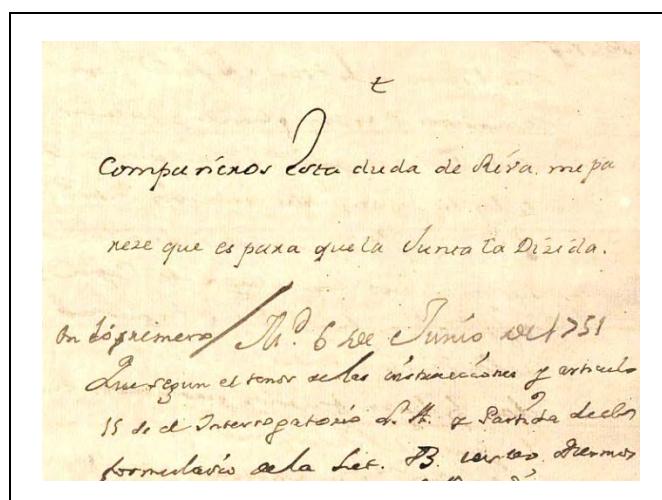 t
Compañeros Esta duda de Riva. me pa
reze que es para que la Junta la Dizida.
En lo primero / M.d 6 de Junio de 1751
Que segun el tenor de las instrucciones y articulo
15 de el Interrogatorio L.a A. y Partida de el
formulario de la Let. B. Diezmos